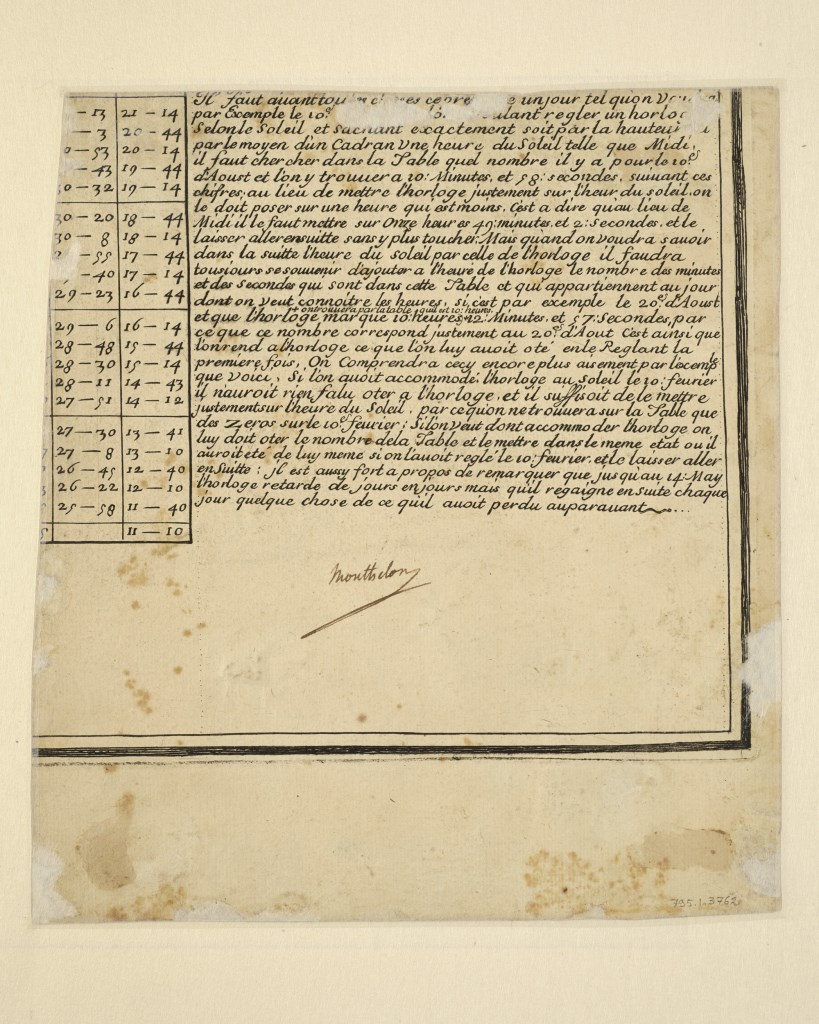 - 13 | 21 - 14
- 3 | 20 - 44
- 53 | 20 - 14
- 43 | 19 - 44
0 - 32 | 19 - 14
30 - 20 | 18 - 44
30 - 8 | 18 - 14
- 55 | 17 - 44
- 40 | 17 - 14
29 - 23 | 16 - 44
29 - 6 | 16 - 14
28 - 48 | 15 - 44
28 - 30 | 15 - 14
28 - 11 | 14 - 43
27 - 51 | 14 - 12
27 - 30 | 13 - 41
27 - 8 | 13 - 10
26 - 45 | 12 - 40
26 - 22 | 12 - 10
25 - 58 | 11 - 40
11 - 10
Il faut auant un jour tel quon
par Exemple le 10e regler un horlo
Selon le Soleil et sachant exactement soit par la hauteu
par le moyen d'un Cadran Vne heure du Soleil telle que Midi,
il faut chercher dans la Table quel nombre il y a pour le 10e
d'Aoust et l'on y trouuera 10: Minutes, et 58: secondes, suiuant ces
chifres; au lieu de mettre l'horloge justement sur l'heur du soleil, on
le doit poser sur une heure qui est moins. C'est a dire qu'au lieu de
Midi il le faut mettre sur Onze heures 49: minutes, et 2: Secondes, et le
laisser aller ensuitte sans y plus toucher. Mais quand on voudra sauoir
dans la suitte l'heure du soleil par celle de l'horloge il faudra
tousiours se souuenir d'ajouter a l'heure de l'horloge le nombre des minutes
et des Secondes qui sont dans cette Table et qui appartiennent au jour
dont on veut connoitre les heures, si c'est par exemple le 20e d'Aoust
+ on trouuera par la table quil est 10: heures.
et que l'horloge marque 10: heures, 12: Minutes, et 57: Secondes, par
ce que ce nombre correspond justement au 20e d'Aout C'est ainsi que
l'on rend a l'horloge ce que l'on luy auoit oté en le Reglant la
premiere fois, On Comprendra cecy encore plus aisement par l'exemp
le
que Voici, Si l'on auoit accommodé l'horloge au Soleil le 10: feurier
il n'auroit rien falu oter a l'horloge, et il suffisoit de le mettre
justement sur l'heure du Soleil, par ce qu'on ne trouuera sur la Table que
des Zeros sur le 10e feurier; Si l'on veut dont accommoder l'horloge on
luy doit oter le nombre de la Table et le mettre dans le meme etat ou il
auroit eté de luy meme si on l'auoit reglé le 10: feurier. et le laisser aller
en Suitte: il est aussy fort a propos de remarquer que jusqu'au 14: May
l'horloge retarde de jours en jours mais qu'il regaigne en suite chaque
jour quelque chose de ce qu'il auoit perdu auparauant ...
795.1.3762